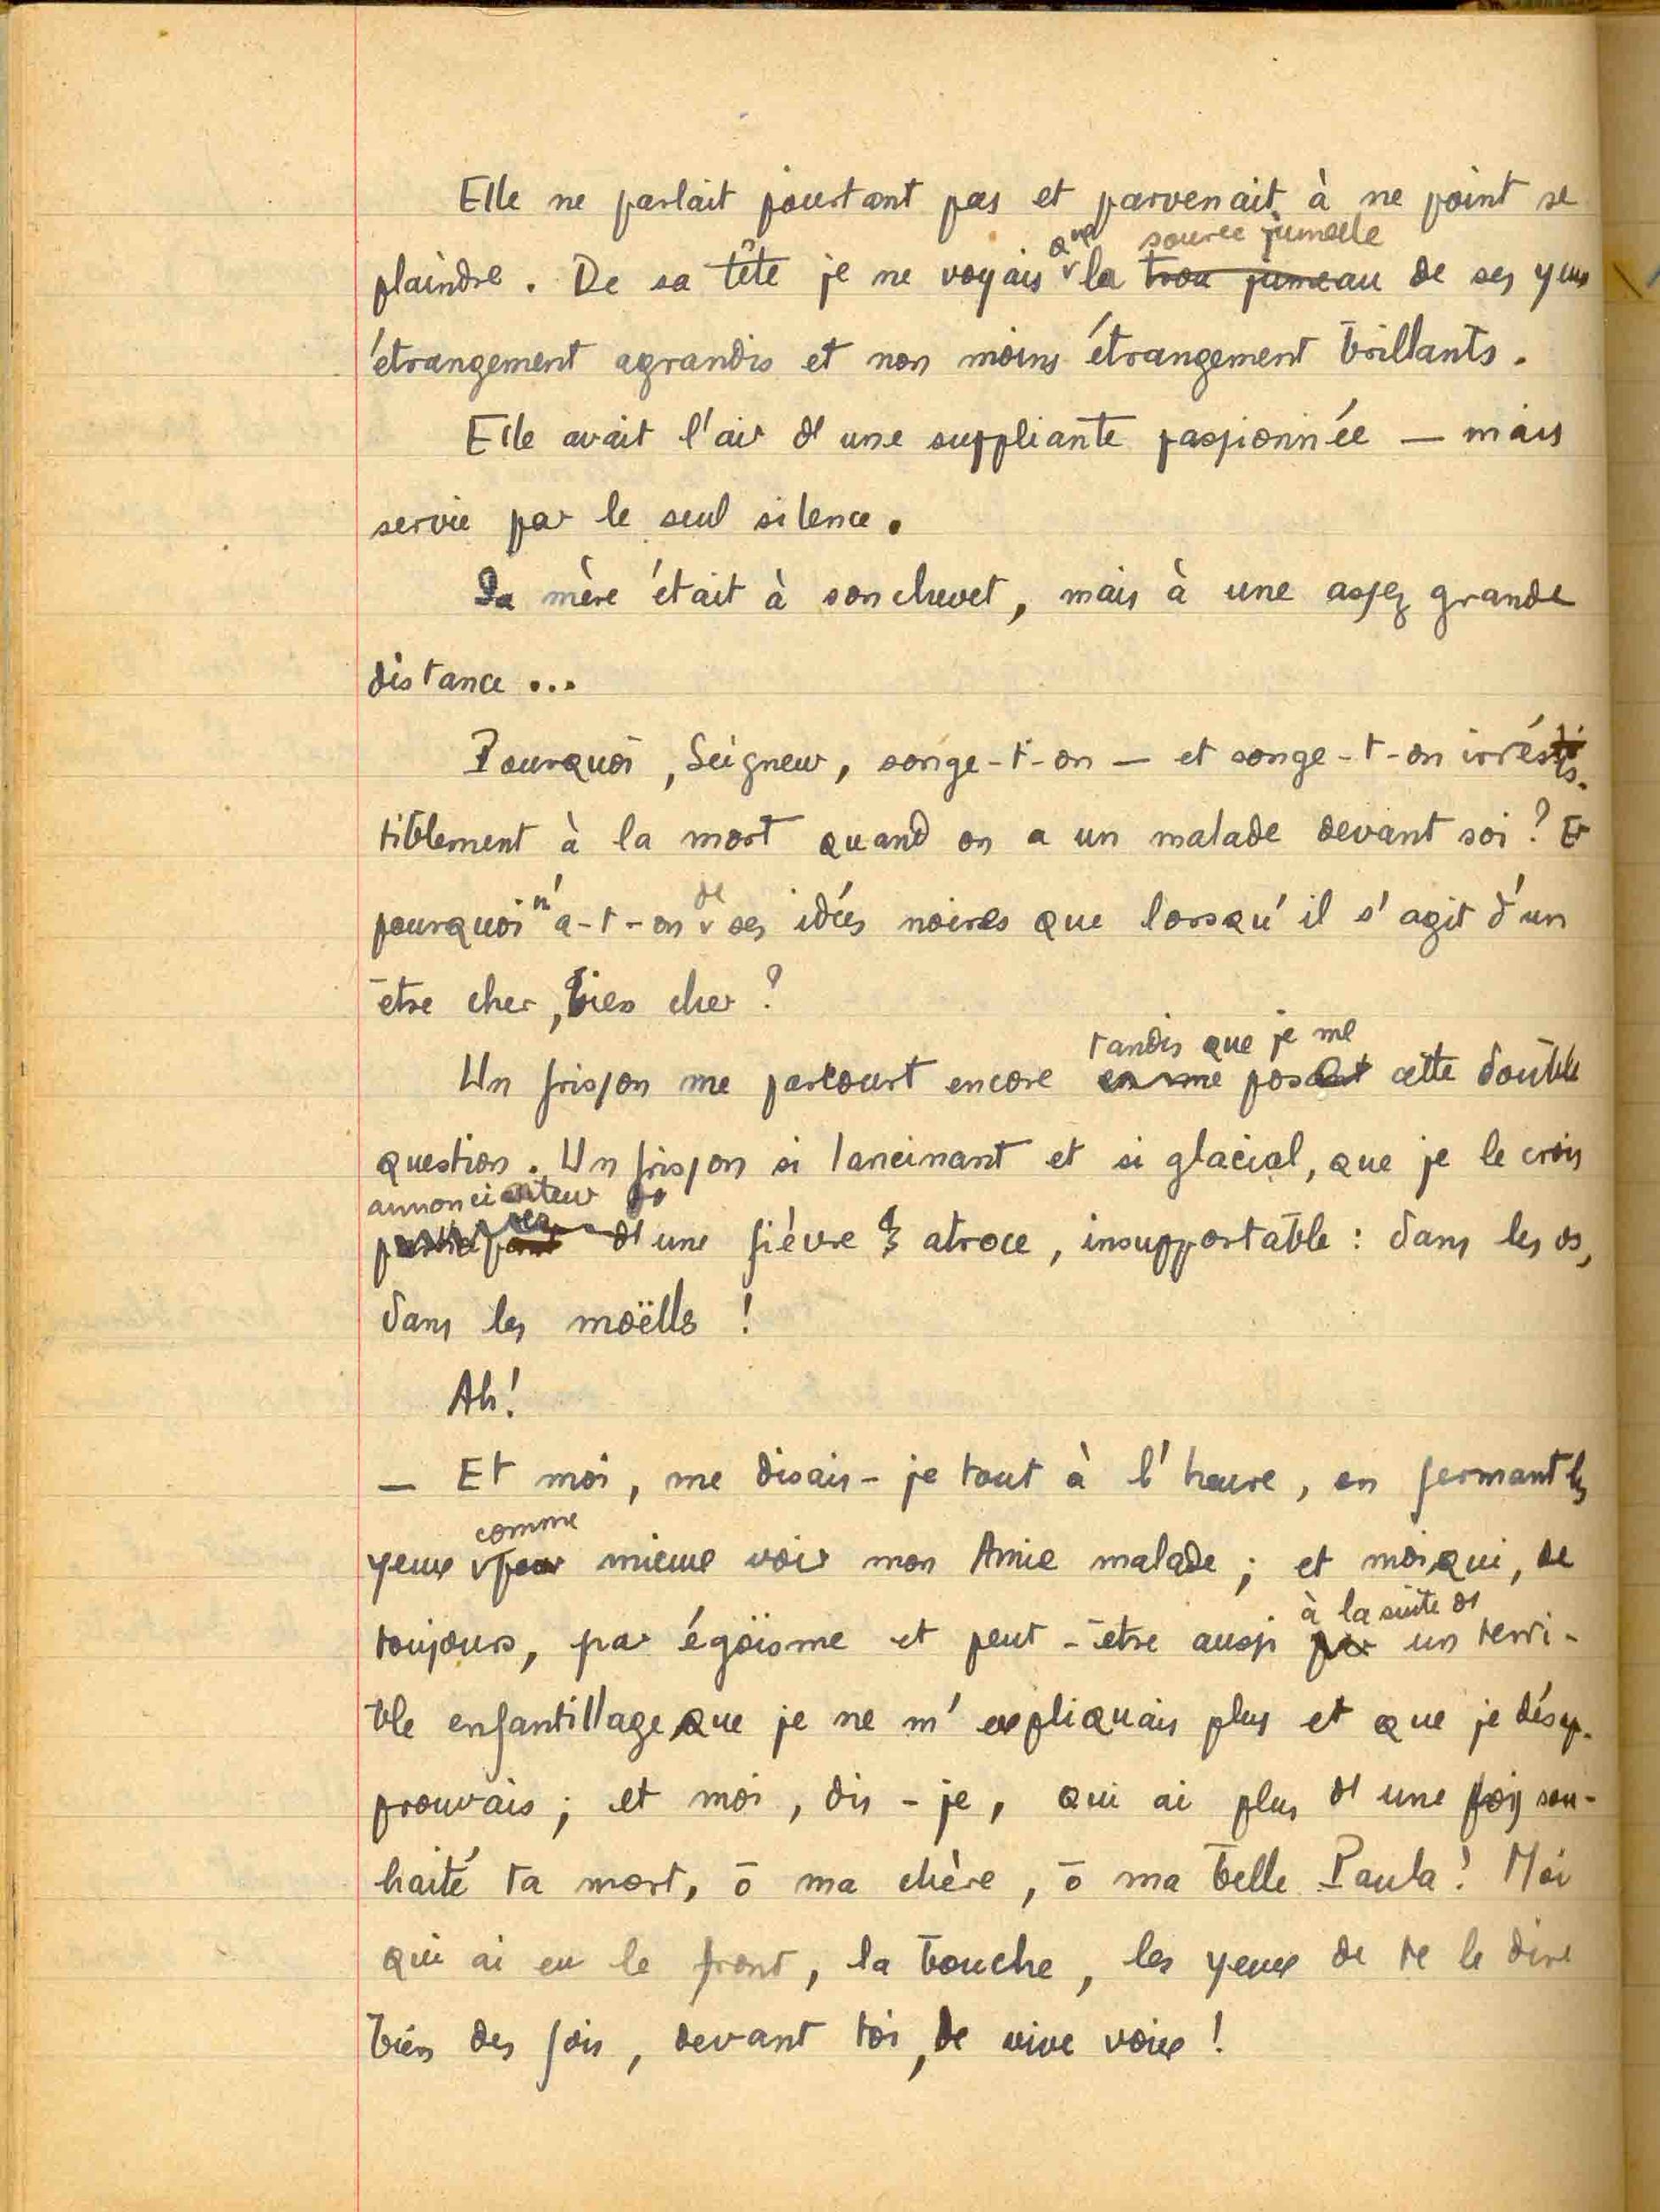 Elle ne parlait pourtant pas et parvenait à ne point se
que source jumelle
plaindre. De sa tête je ne voyais la trou jumeau de ses yeux
étrangement agrandis et non moins étrangement brillants.
Elle avait l'air d'une suppliante passionnée — mais
servie par le seul silence.
Sa mère était à son chevet, mais à une assez grande
distance...
Pourquoi, Seigneur, songe-t-on — et songe-t-on irrésis-
tiblement à la mort quand on a un malade devant soi ? Et
n' de
pourquoi a-t-on ses idées noires que lorsqu'il s'agit d'un
être cher, bien cher ?
tandis que je me
Un frisson me parcourt encore en me posant cette double
question. Un frisson si lancinant et si glacial, que je le crois
annonciateur
d'une fièvre atroce, insupportable : dans les os,
dans les moëlles !
Ah !
— Et moi, me disais-je tout à l'heure, en fermant les
comme
yeux pour mieux voir mon Amie malade ; et moi qui, de
à la suite d'
toujours, par égoïsme et peut-être aussi par un terri-
ble enfantillage que je ne m'expliquais plus et que je désap-
prouvais ; et moi, dis-je, qui ai plus d'une fois sou-
haité ta mort, ô ma chère, ô ma belle Paula ! Moi
qui ai eu le front, la bouche, les yeux de te le dire
bien des fois, devant toi, de vive voix !